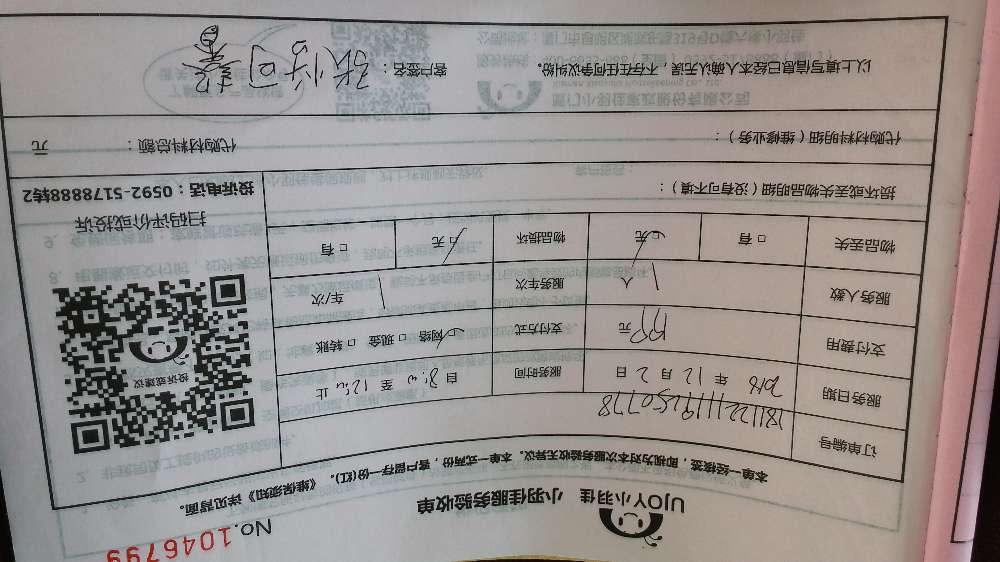 UJOY小羽佳 小羽佳服务验收单
No.1046799
本单一经核签，即视为对本次服务验收无异议。本单一式两份，客户留存一份(红)。《维保须知》详见背面。
订单编号 1811221119250778
服务日期 2018 年 12 月 2 日 服务时间 自 8:00 至 12:00 止
支付费用 199元 支付方式 ☑网络 □现金 □转账
服务人数 1 人 服务车次 1 车/次
物品丢失 □有 ☑无 物品损坏 ☑无 □有
投诉或建议
扫码评价或投诉
投诉电话：0592-5178888转2
损坏或丢失物品明细（没有可不填）：
代购材料明细（维修业务）： 代购材料总额： 元
以上填写信息已经本人确认无误，不存在任何争议纠纷。 客户签名：